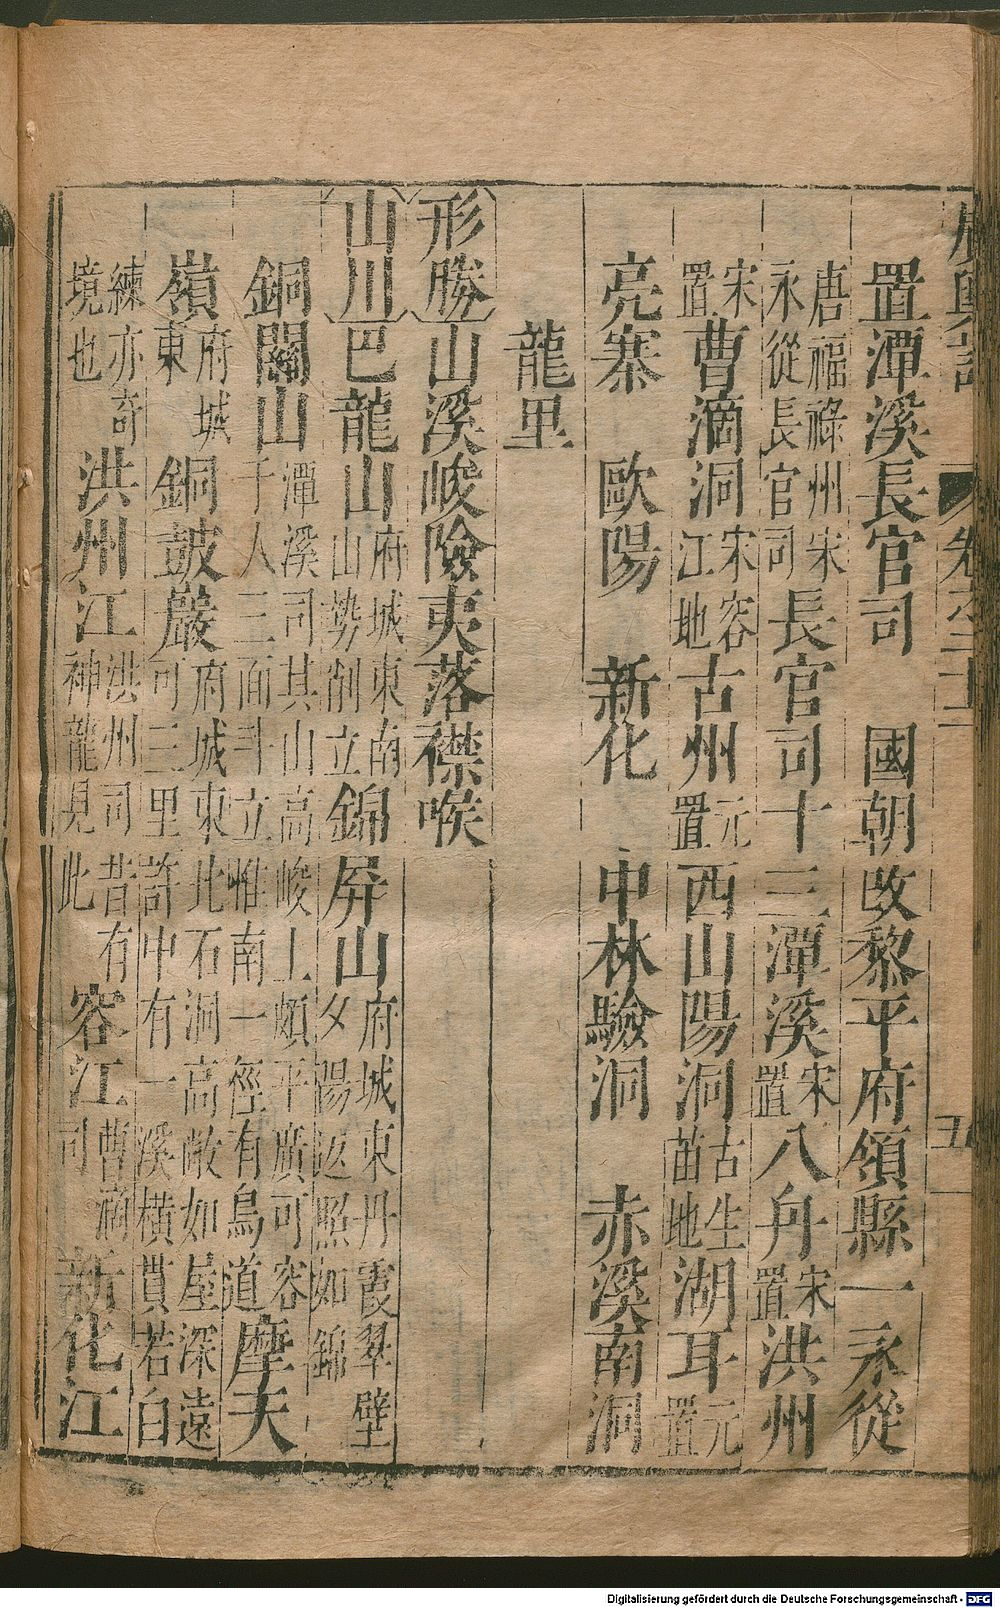 廣輿記 卷之二十二 五
置潭溪長官司 國朝改黎平府領縣一永從
唐福祿州宋永從長官司長官司十三潭溪宋置八舟宋置洪州
宋置曹滴洞宋容江地古州元置西山陽洞古生苗地湖耳元置
亮寨 歐陽 新化 中林驗洞 赤溪南洞
龍里
形勝山溪峻險夷落襟喉
山川巴龍山府城東南山勢削立錦屏山府城東丹霞翠壁夕陽返照如錦
銅關山潭溪司其山高峻上頗平廣可容千人三面斗立惟南一徑有鳥道摩天
嶺府城東銅鼓巖府城東北石洞高敞如屋深遠可三里許中有一溪橫貫若白
練亦奇境也洪州江洪州司昔有神龍見此容江曹滴司新化江
Digitalisierung gefördert durch die Deutsche Forschungsgemeinschaft - DFG